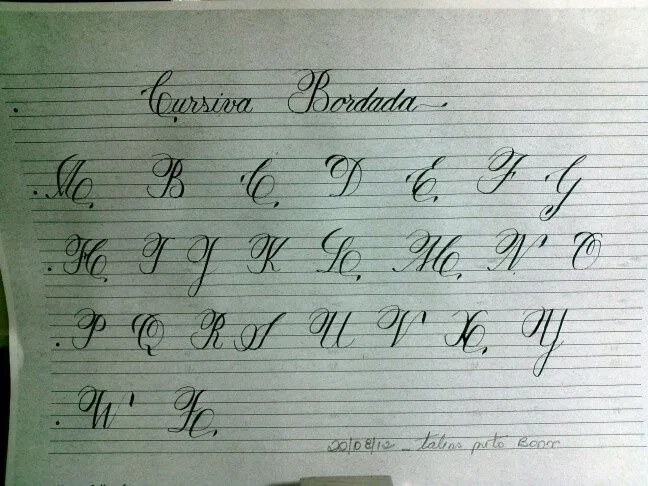 Cursiva Bordada
A B C D E F G
H I J K L M N O
P Q R S U V X Y
W Z
20/08/12 _ talens